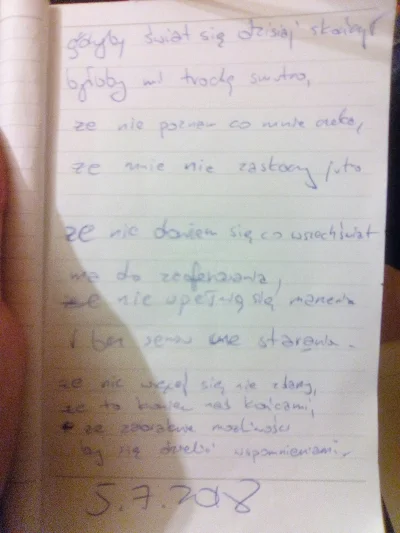 gdyby świat się dzisiaj skończył
byłoby mi trochę smutno,
że nie poznam co mnie czeka,
że mnie nie zaskoczy jutro
że nie dowiem się co wszechświat
ma do zaoferowania,
że nie spełnią się marzenia
i bez sensu me starania.
że nic więcej się nie zdarzy,
że to koniec nas kończący,
że zabraknie możliwości
by się dzielić wspomnieniami.
5.7.2018